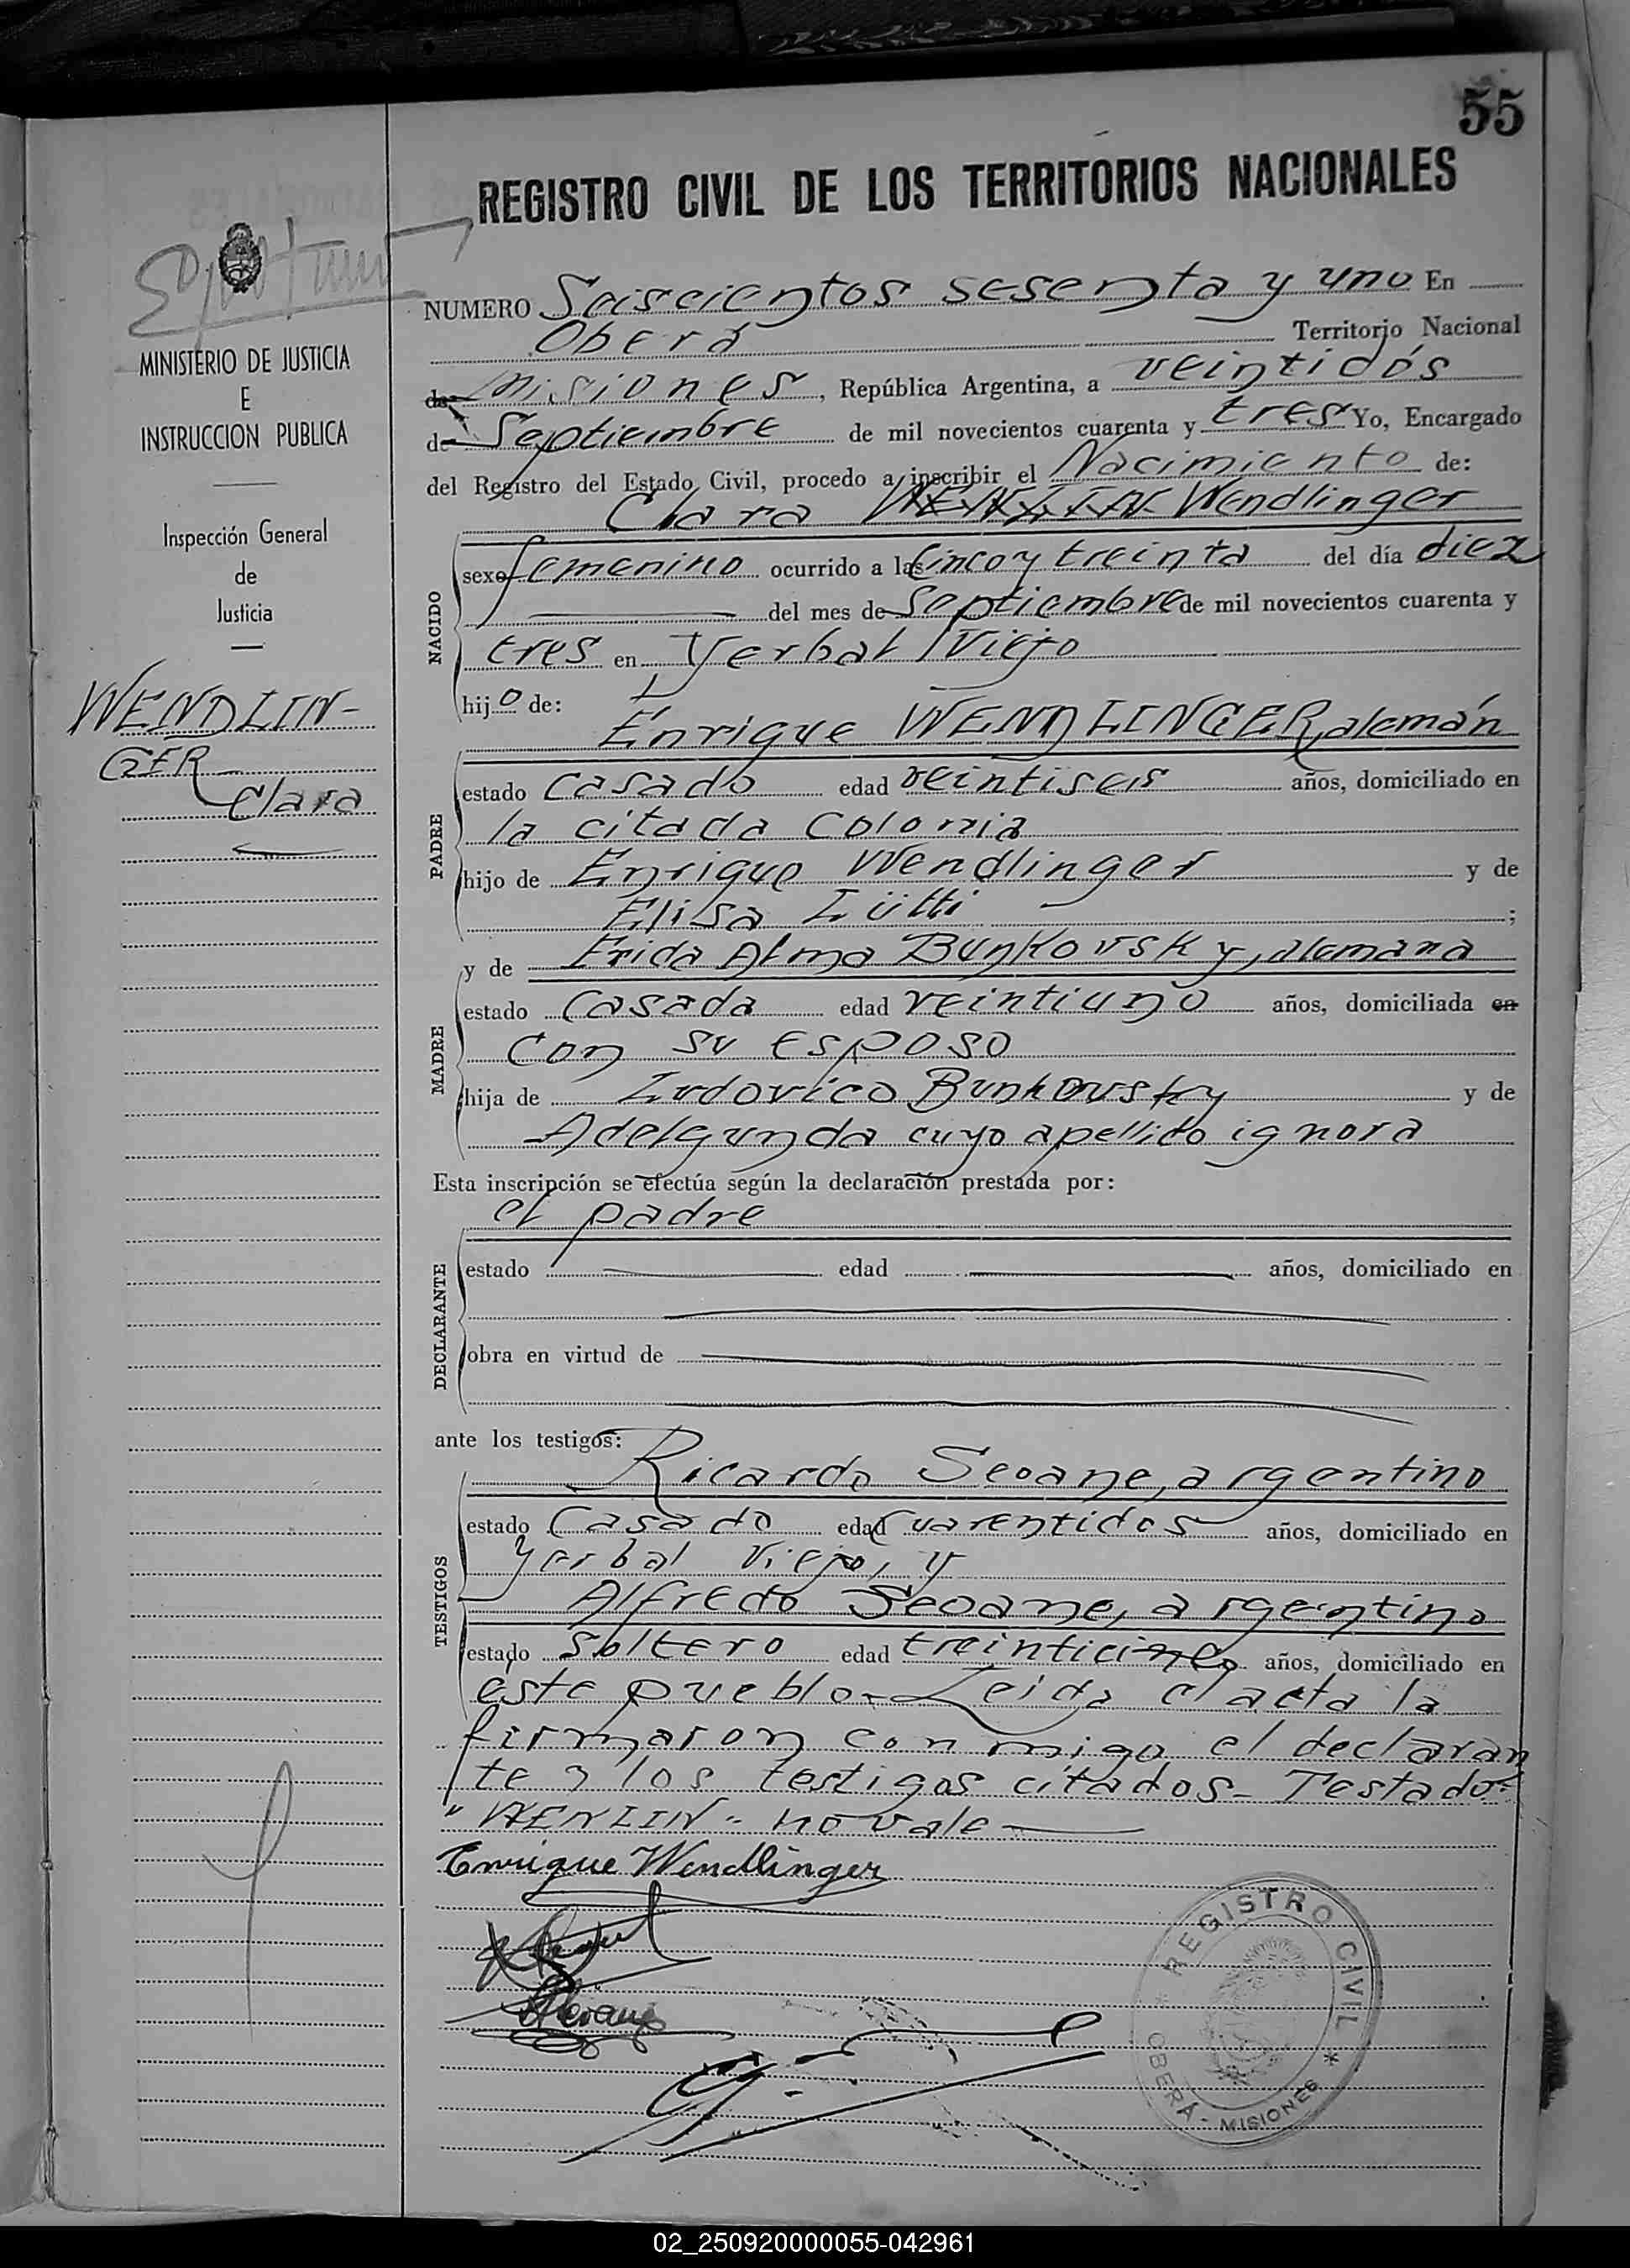 55
REGISTRO CIVIL DE LOS TERRITORIOS NACIONALES
MINISTERIO DE JUSTICIA
E
INSTRUCCION PUBLICA
Inspección General
de
Justicia
WENDLIN-
GER
Clara
NUMERO Seiscientos sesenta y uno En
Oberá Territorio Nacional
de Misiones, República Argentina, a veintidós
de Septiembre de mil novecientos cuarenta y tres Yo, Encargado
del Registro del Estado Civil, procedo a inscribir el Nacimiento de:
Clara WENLIN Wendlinger
NACIDO
sexo femenino ocurrido a las cinco y treinta del día diez
del mes de Septiembre de mil novecientos cuarenta y
tres en Yerbal Viejo
hijo de:
Enrique WENDLINGER, alemán
PADRE
estado casado edad veintiseis años, domiciliado en
la citada Colonia
hijo de Enrique Wendlinger y de
Elisa Lütti ;
y de Frida Alma Bunkovsky, alemana
MADRE
estado casada edad veintiuno años, domiciliada en
con su esposo
hija de Ludovico Bunkovsky y de
Adelgunda cuyo apellido ignora
Esta inscripción se efectúa según la declaración prestada por:
el padre
DECLARANTE
estado edad años, domiciliado en
obra en virtud de
ante los testigos:
Ricardo Seoane, argentino
TESTIGOS
estado casado edad cuarentidos años, domiciliado en
Yerbal Viejo, y
Alfredo Seoane, argentino
estado soltero edad treinticinco años, domiciliado en
éste pueblo.- Leida el acta la
firmaron conmigo el declaran
te y los testigos citados- Testado:
"WENLIN" no vale
Enrique Wendlinger
REGISTRO CIVIL
* OBERÁ - MISIONES *
02_250920000055-042961